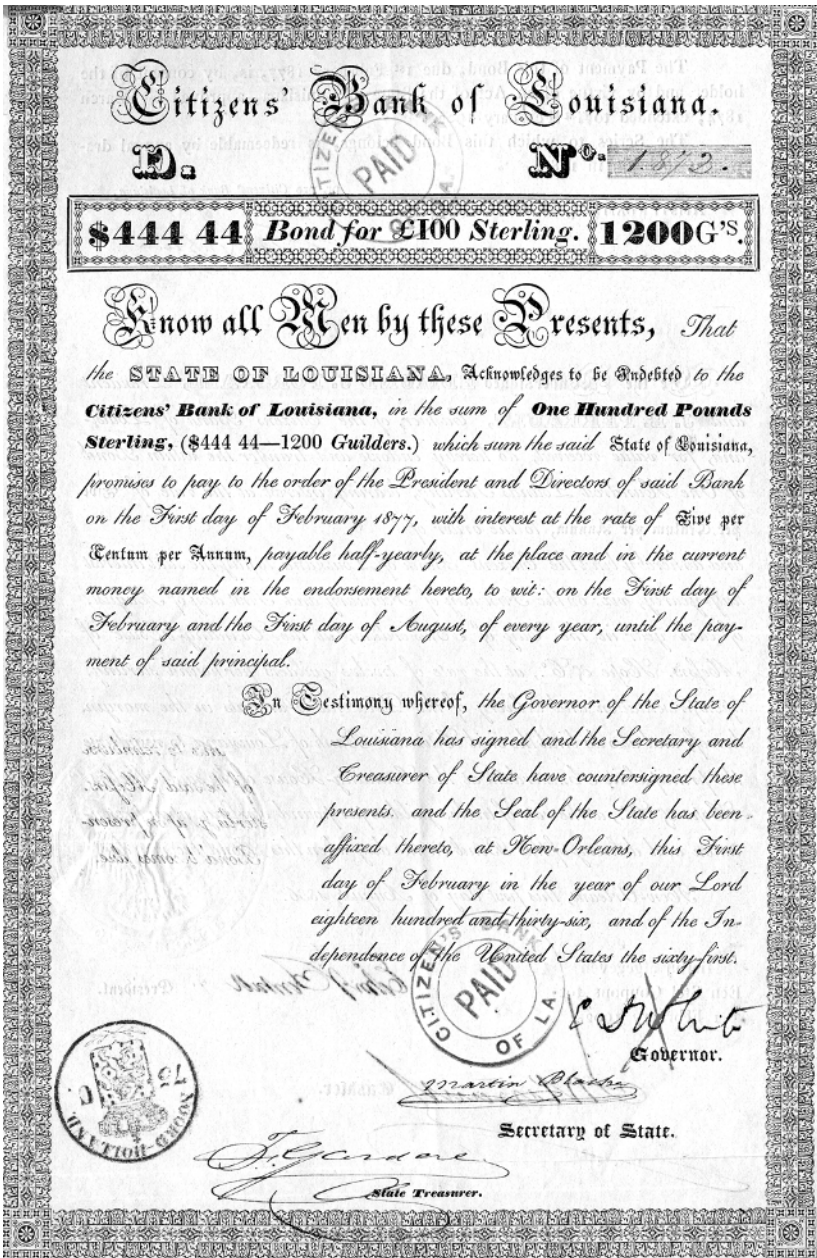 Citizens' Bank of Louisiana.
D. No. 1873.
$444 44 Bond for £100 Sterling. 1200 G'S.
Know all Men by these Presents, That
the STATE OF LOUISIANA, Acknowledges to be Indebted to the
Citizens' Bank of Louisiana, in the sum of One Hundred Pounds
Sterling, ($444 44—1200 Guilders.) which sum the said State of Louisiana,
promises to pay to the order of the President and Directors of said Bank
on the First day of February 1877, with interest at the rate of Five per
Centum per Annum, payable half-yearly, at the place and in the current
money named in the endorsement hereto, to wit: on the First day of
February and the First day of August, of every year, until the pay-
ment of said principal.
In Testimony whereof, the Governor of the State of
Louisiana has signed and the Secretary and
Treasurer of State have countersigned these
presents, and the Seal of the State has been
affixed thereto, at New-Orleans, this First
day of February in the year of our Lord
eighteen hundred and thirty-six, and of the In-
dependence of the United States the sixty-first.
CITIZEN'S BANK OF LA.
PAID
Governor.
Martin Blache
Secretary of State.
NOORD-HOLLAND
State Treasurer.